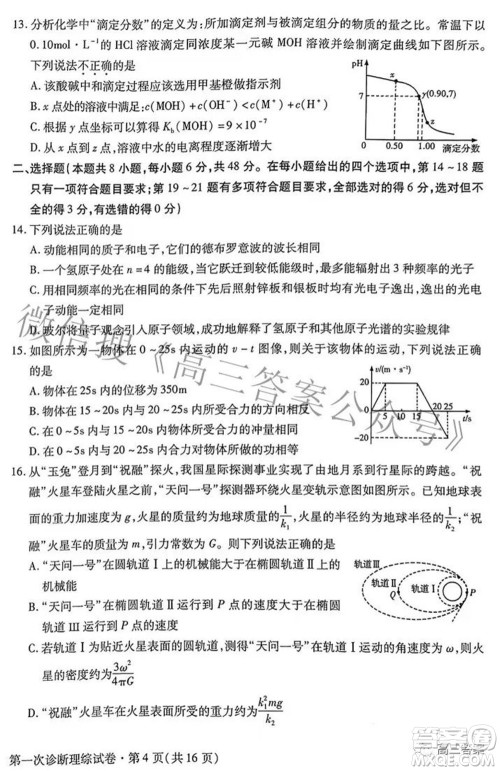 13. 分析化学中“滴定分数”的定义为:所加滴定剂与被滴定组分的物质的量之比。常温下以
0.10mol·L⁻¹的HCl溶液滴定同浓度某一元碱MOH溶液并绘制滴定曲线如图所示。
下列说法不正确的是
A. 该酸碱中和滴定过程应该选用甲基橙做指示剂
B. x点处的溶液中满足:c(MOH)+c(OH⁻)<c(M⁺)+c(H⁺)
C. 根据y点坐标可以算得K_b(MOH)=9×10⁻⁷
D. 从x点到z点,溶液中水的电离程度逐渐增大
pH
7
x
y(0.90,7)
z
0 0.50 1.00 滴定分数
二、选择题(本题共8小题,每小题6分,共48分。在每小题给出的四个选项中,第14~18题
只有一项符合题目要求,第19~21题有多项符合题目要求,全部选对的得6分,选对但不
全的得3分,有选错的得0分)
14. 下列说法正确的是
A. 动能相同的质子和电子,它们的德布罗意波的波长相同
B. 一个氢原子处在n=4的能级,当它跃迁到较低能级时,最多能辐射出3种频率的光子
C. 用相同频率的光在相同的条件下先后照射锌板和银板时均有光电子逸出,逸出的光电子
动能一定相同
D. 玻尔将量子观念引入原子领域,成功解释了氢原子和其他原子光谱的实验规律
15. 如图所示为一物体在0~25s内运动的v-t图像,则关于该物体的运动,下列说法正确
的是
A. 物体在25s内的位移为350m
B. 物体在15~20s与20~25s内所受合力的方向相反
C. 物体在0~5s与15~20s内所受合外力的大小相等
D. 物体在0~20s内所受合外力做的功为0
v/(m·s⁻¹)
20
0 5 10 15 20 25 t/s
16. 从“玉兔”登月到“祝融”探火,我国星际探测事业实现了由地月系到行星际的跨越。“祝
融”火星车登陆火星之前,“天问一号”探测器环绕火星变轨示意图如图。已知地球表
面的重力加速度为g,火星的质量约为地球质量的1/k₁,火星的半径约为地球半径的1/k₂;“祝
融”火星车的质量为m,引力常量为G。则下列说法正确的是
A. “天问一号”在圆轨道Ⅰ上的机械能大于在椭圆轨道Ⅱ上的
机械能
B. “天问一号”在椭圆轨道Ⅱ上运行到P点的速度大于在椭圆
轨道Ⅲ上运行到P点的速度
C. 若轨道Ⅰ为贴近火星表面的圆轨道,测得“天问一号”在轨道Ⅰ运动的角速度为ω,则火
星的平均密度为3ω²/4πG
D. “祝融”火星车在火星表面所受重力约为k₁²mg/k₂
轨道Ⅲ
轨道Ⅱ
轨道Ⅰ
Q
P
第一次诊断理综试卷·第4页(共16页)
微信搜《高三答案公众号》
高三答案